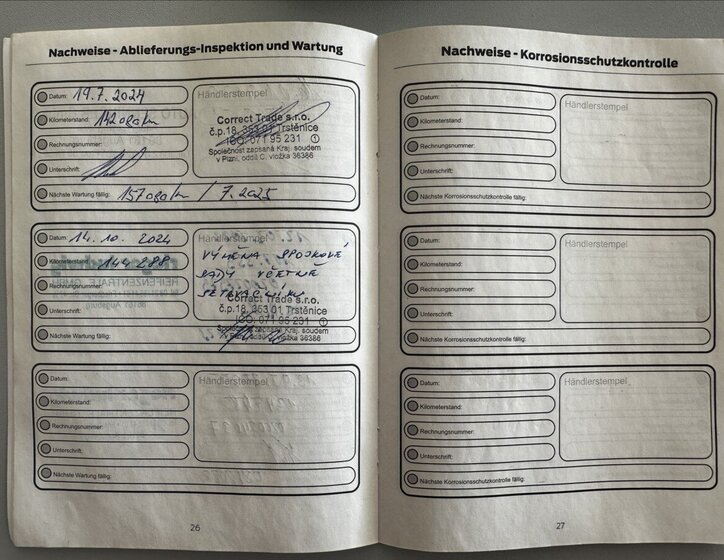 Nachweise - Ablieferungs-Inspektion und Wartung
Datum: 19.7.2024
Händlerstempel
Kilometerstand: 142080 km
Correct Trade s.r.o.
č.p.18, 353 01 Trstěnice
Rechnungsnummer:
IČO: 071 95 231 ①
Společnost zapsaná Kraj. soudem
v Plzni, oddíl C, vložka 36386
Unterschrift:
Nächste Wartung fällig: 157080km / 7.2025
Datum: 14.10.2024
Händlerstempel
VÝMĚNA SPOJKOVÉ
Kilometerstand: 144 288
SADY VČETNĚ
Rechnungsnummer:
SETRVAČNÍKU
Correct Trade s.r.o.
č.p.18, 353 01 Trstěnice
Unterschrift:
IČO: 071 95 231 ①
Společnost zapsaná Kraj. soudem
36386
Nächste Wartung fällig:
Datum:
Händlerstempel
Kilometerstand:
Rechnungsnummer:
Unterschrift:
Nächste Wartung fällig:
26
Nachweise - Korrosionsschutzkontrolle
Datum:
Händlerstempel
Kilometerstand:
Rechnungsnummer:
Unterschrift:
Nächste Korrosionsschutzkontrolle fällig:
Datum:
Händlerstempel
Kilometerstand:
Rechnungsnummer:
Unterschrift:
Nächste Korrosionsschutzkontrolle fällig:
Datum:
Händlerstempel
Kilometerstand:
Rechnungsnummer:
Unterschrift:
Nächste Korrosionsschutzkontrolle fällig:
27